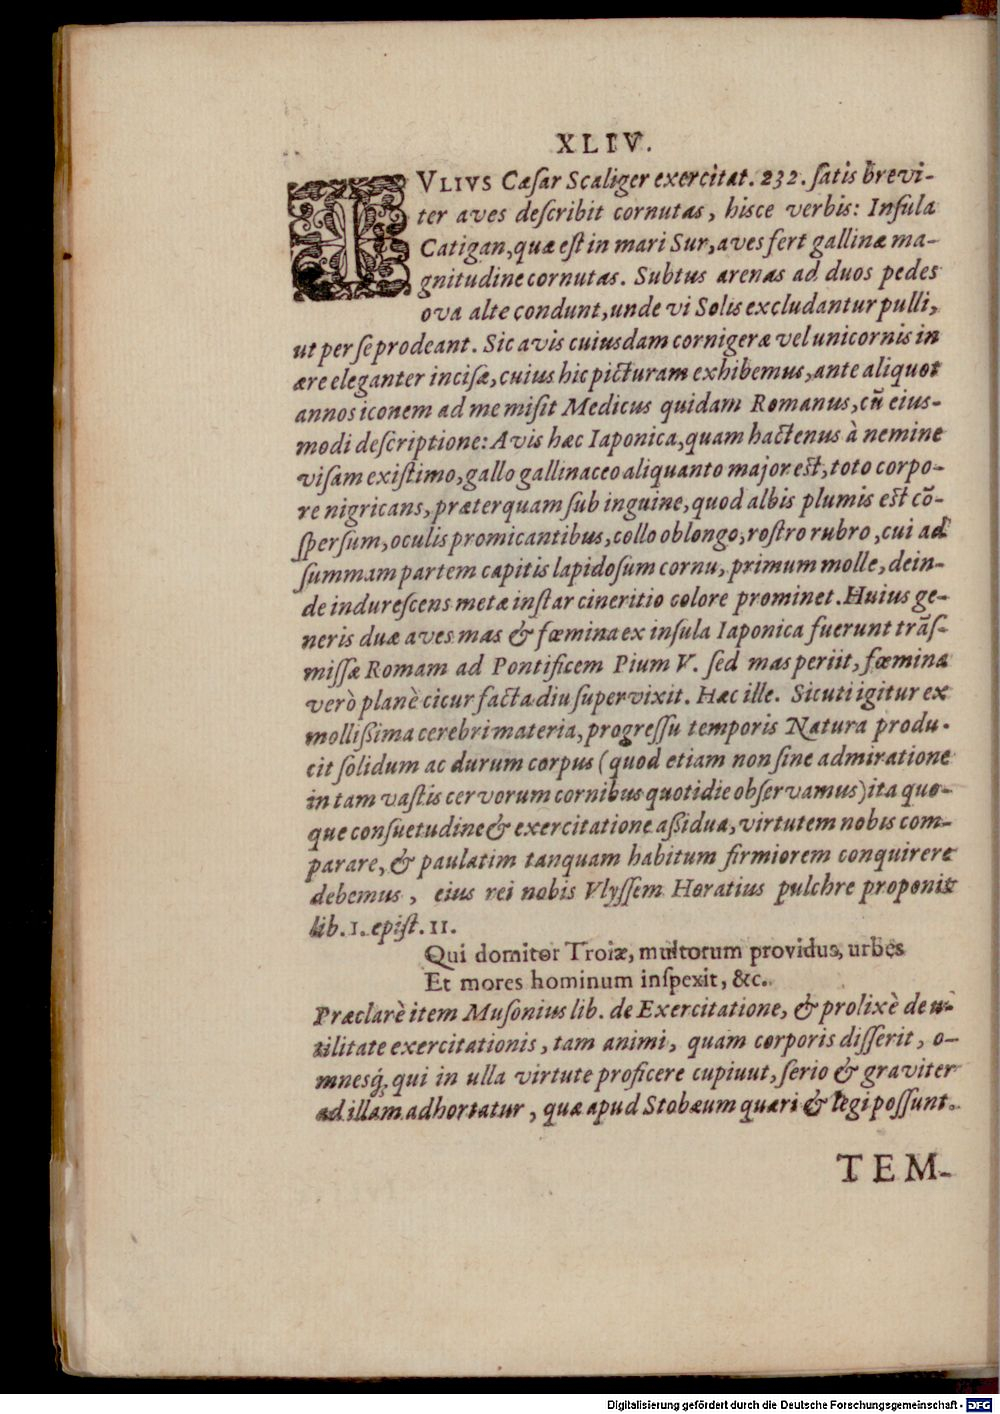 XLIV.
IVLIVS Cæſar Scaliger exercitat. 232. ſatis brevi-
ter aves deſcribit cornutas, hisce verbis: Inſula
Catigan, quæ eſt in mari Sur, aves fert gallinæ ma-
gnitudine cornutas. Subtus arenas ad duos pedes
ova alte condunt, unde vi Solis excludantur pulli,
ut per ſe prodeant. Sic avis cuiusdam cornigeræ vel unicornis in
ære eleganter inciſæ, cuius hic picturam exhibemus, ante aliquot
annos iconem ad me miſit Medicus quidam Romanus, cũ eius-
modi deſcriptione: Avis hæc Iaponica, quam hactenus à nemine
viſam exiſtimo, gallo gallinaceo aliquanto major eſt, toto corpo-
re nigricans, præterquam ſub inguine, quod albis plumis eſt cõ-
ſperſum, oculis promicantibus, collo oblongo, roſtro rubro, cui ad
ſummam partem capitis lapidoſum cornu, primum molle, dein-
de indureſcens metæ inſtar cineritio colore prominet. Huius ge-
neris duæ aves mas & fœmina ex inſula Iaponica fuerunt trãſ-
miſſæ Romam ad Pontificem Pium V. ſed mas periit, fœmina
verò planè cicur facta diu ſupervixit. Hæc ille. Sicuti igitur ex
mollißima cerebri materia, progreſſu temporis Natura produ-
cit ſolidum ac durum corpus (quod etiam non ſine admiratione
in tam vaſtis cervorum cornibus quotidie obſervamus) ita quo-
que conſuetudine & exercitatione aßidua, virtutem nobis com-
parare, & paulatim tanquam habitum firmiorem conquirere
debemus, eius rei nobis Vlyſſem Horatius pulchre proponit
lib. 1. epiſt. 11.
Qui domitor Troiæ, multorum providus, urbes
Et mores hominum inſpexit, &c.
Præclarè item Muſonius lib. de Exercitatione, & prolixè de u-
tilitate exercitationis, tam animi, quam corporis diſſerit, o-
mnesq́, qui in ulla virtute proficere cupiuut, ſerio & graviter
ad illam adhortatur, quæ apud Stobæum quæri & legi poſſunt.
TEM-
Digitalisierung gefördert durch die Deutsche Forschungsgemeinschaft - DFG